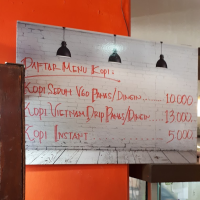 Daftar Menu Kopi :
Kopi Seduh V60 Panas/Dingin ... 10.000
Kopi Vietnam Drip Panas/Dingin ... 13.000
Kopi Instant 5.000